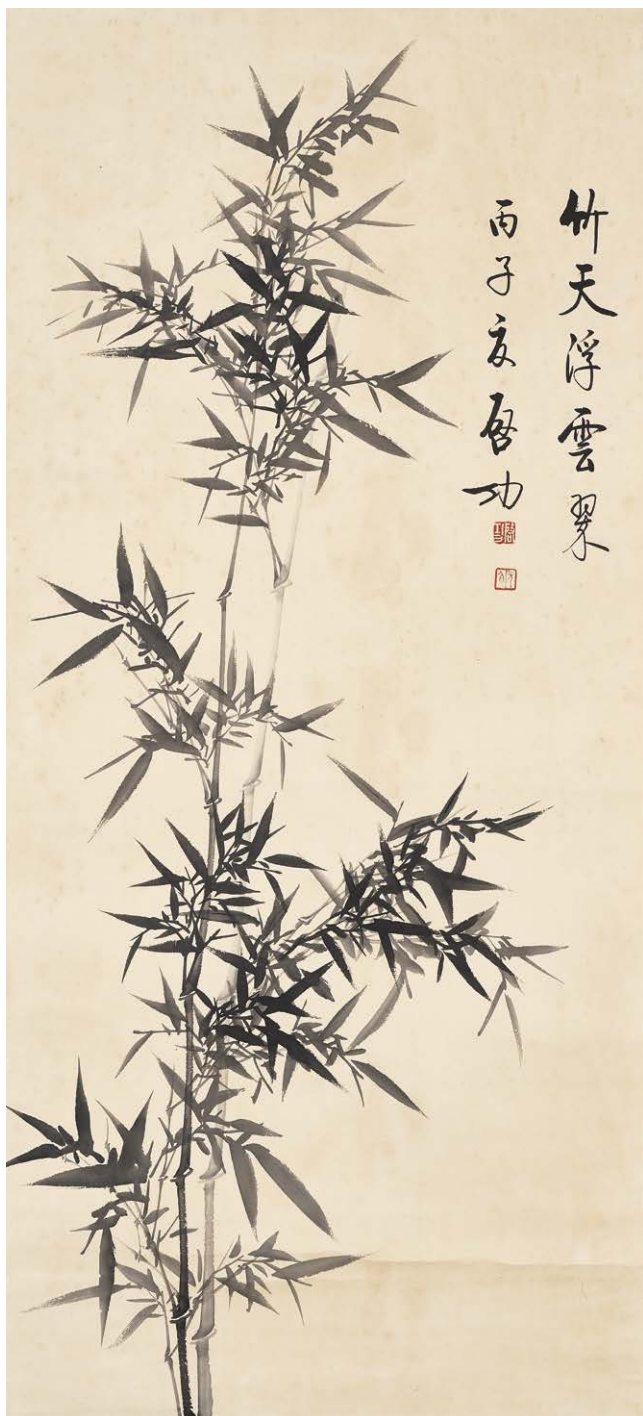 竹天浮雲翠
丙子夏啓功